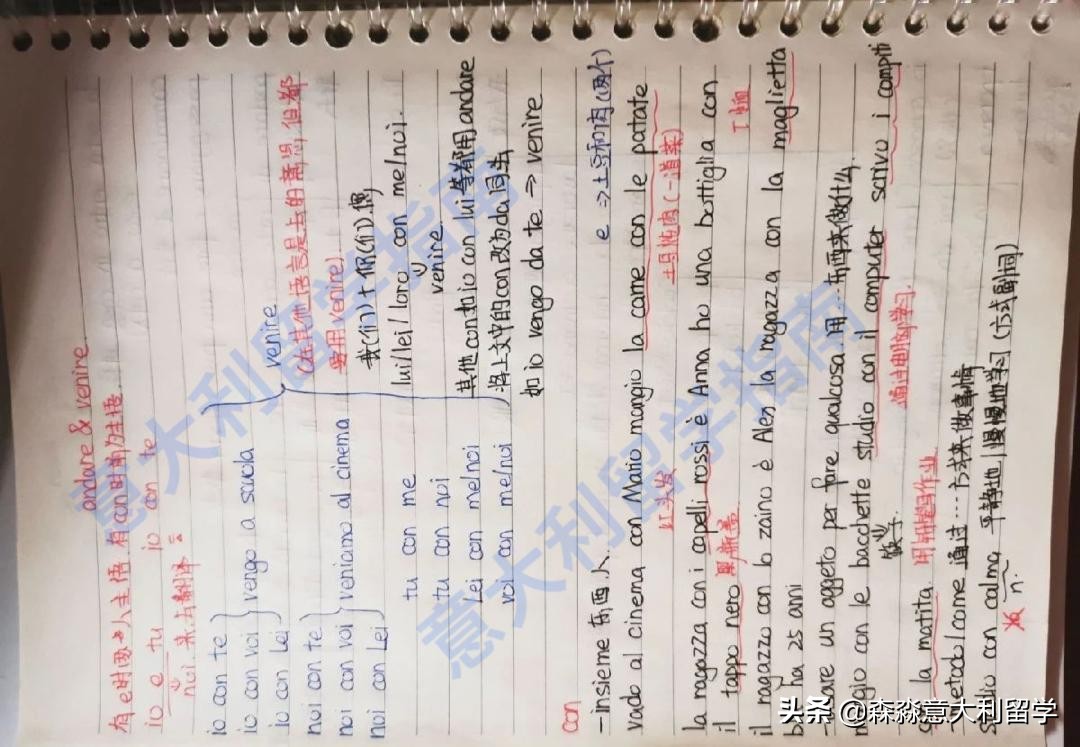 andare & venire
有e时两个主语 有con时前为主语
io e tu io con te
noi 来去翻译 =
io con te
io con voi } vengo a scuola
io con Lei
venire
(在其他语言是去的意思,但都要用venire)
noi con te
noi con voi } veniamo al cinema
noi con Lei
我(们)+你(们)/您
tu con me
tu con noi
Lei con me/noi
voi con me/noi
lui/lei/loro con me/noi.
venire
其他con如io con lui 等都用andare
将上文中的con改为da同去
如io vengo da te => venire
con
-insieme 东西、人 e => 土豆和肉(两个)
vado al cinema con Mario mangio la carne con le patate
红头发 土豆炖肉(一道菜)
la ragazza con i capelli rossi è Anna ho una bottiglia con
il tappo nero 黑瓶盖 T恤
il ragazzo con lo zaino è Alex la ragazza con la maglietta
ha 25 anni
un oggeto per fare qualcosa 用...东西来做什么
con le bacchette studio con il computer scrivo i compiti
筷子 通过电脑学习
la matita 用铅笔写作业
metodo/come 通过...方式来做事情
Studio con calma 平静地/慢慢地学习(方式副词)
n.
意大利留学指南
意大利留学指南
头条 @森淼意大利留学